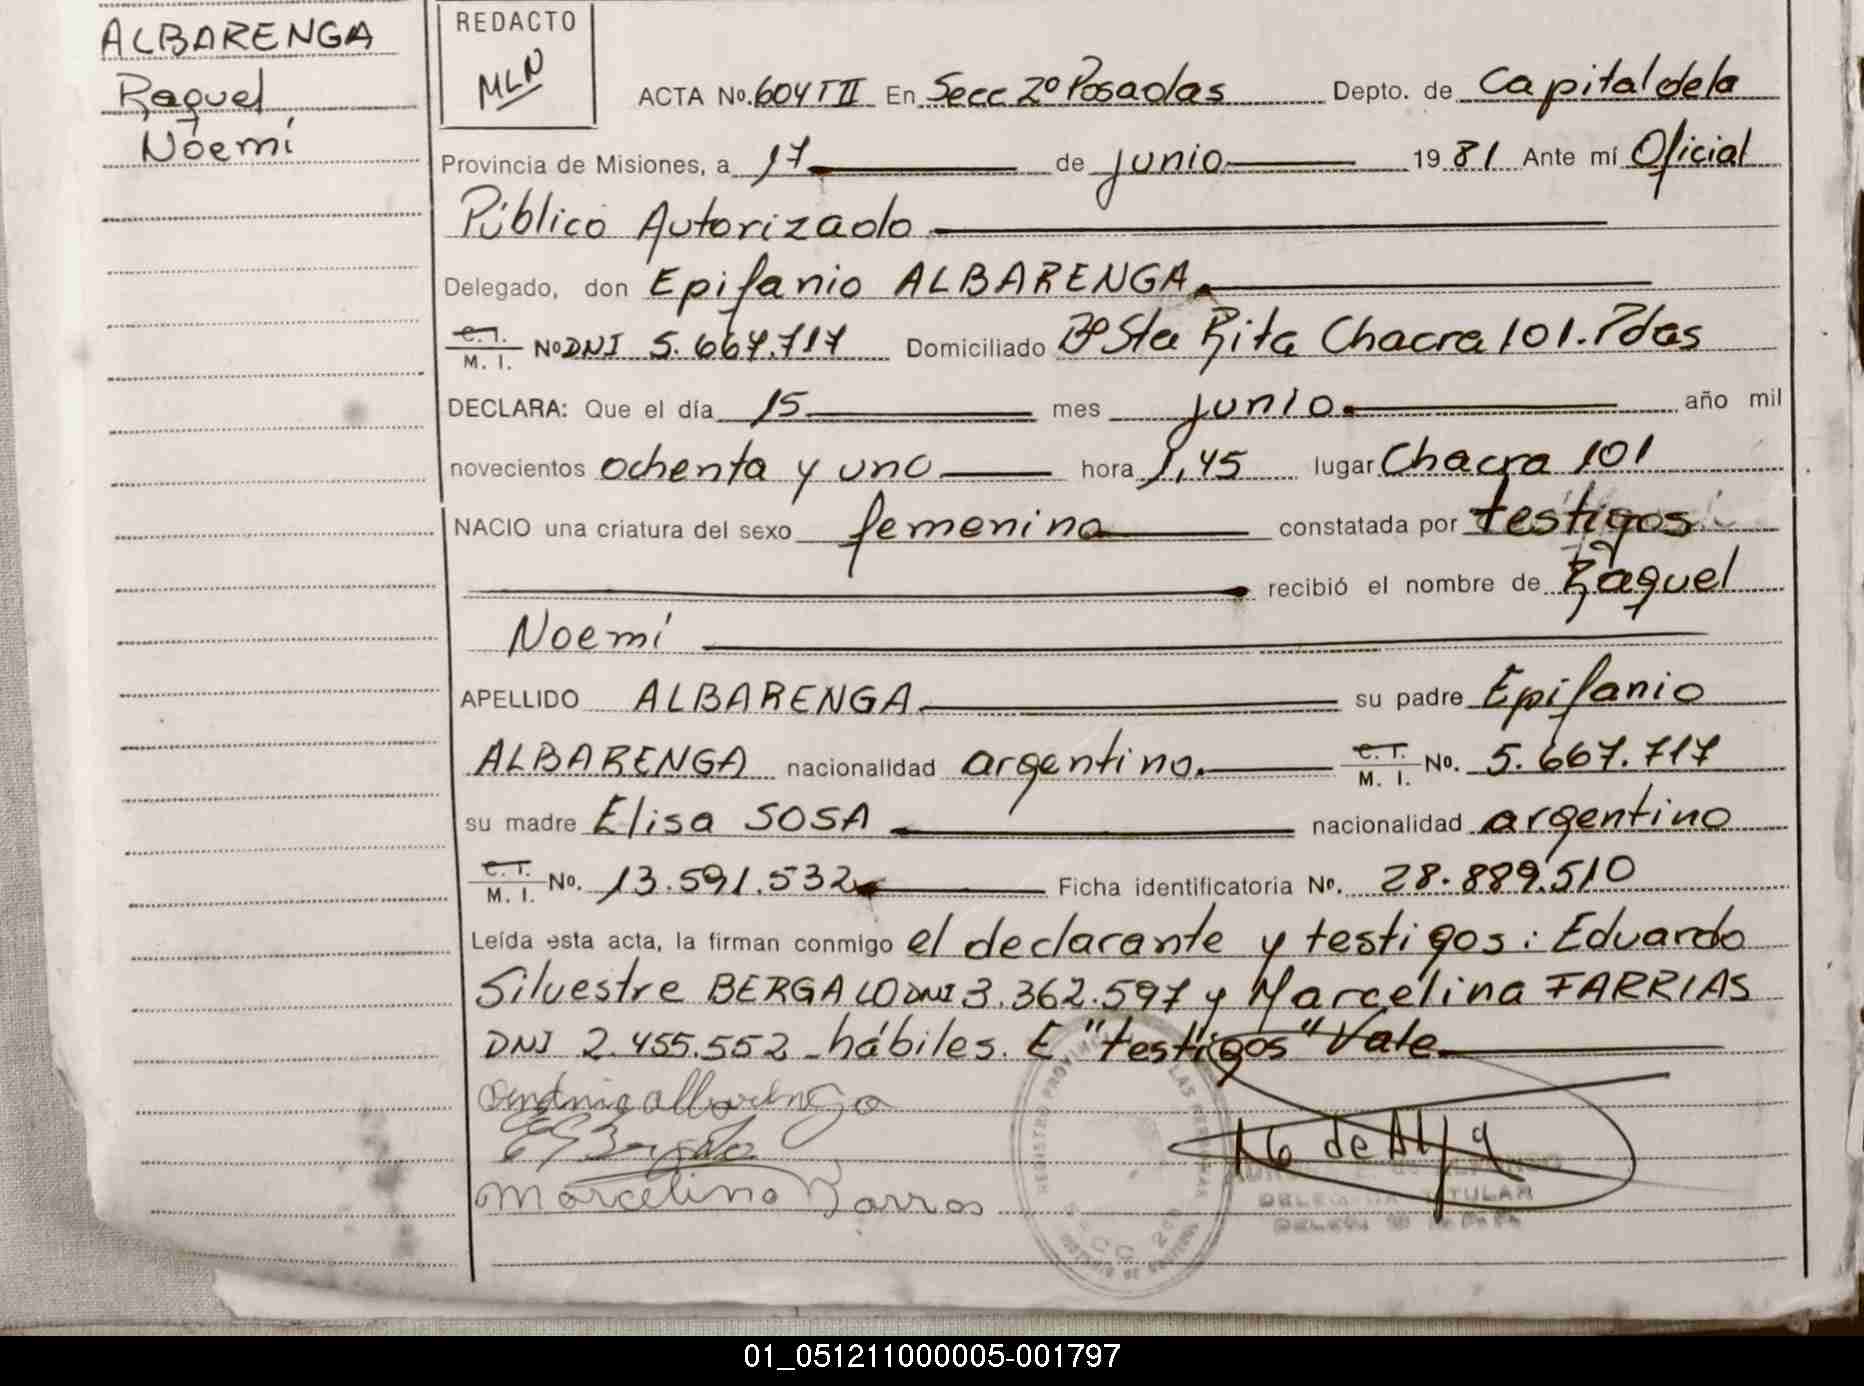 ALBARENGA
Raquel
Noemí
REDACTO
MLN
ACTA No. 604 T II En Secc 2º Posadas Depto. de Capital de la
Provincia de Misiones, a 17 de junio 19 81 Ante mí Oficial
Público Autorizado
Delegado, don Epifanio ALBARENGA
C. I.
M. I. No DNI 5.667.717 Domiciliado Bº Sta Rita Chacra 101. Pdas
DECLARA: Que el día 15 mes junio año mil
novecientos ochenta y uno hora 1,45 lugar Chacra 101
NACIO una criatura del sexo femenino constatada por testigos
recibió el nombre de Raquel
Noemí
APELLIDO ALBARENGA su padre Epifanio
ALBARENGA nacionalidad argentino. C. I. M. I. No. 5.667.717
su madre Elisa SOSA nacionalidad argentino
C. I. M. I. No. 13.591.532 Ficha identificatoria No. 28.889.510
Leída esta acta, la firman conmigo el declarante y testigos: Eduardo
Silvestre BERGALO DNI 3.362.597 y Marcelina FARRIAS
DNI 2.455.552 hábiles. E "testigos" Vale
albarenga
Marcelina
DELEGADA TITULAR
01_051211000005-001797